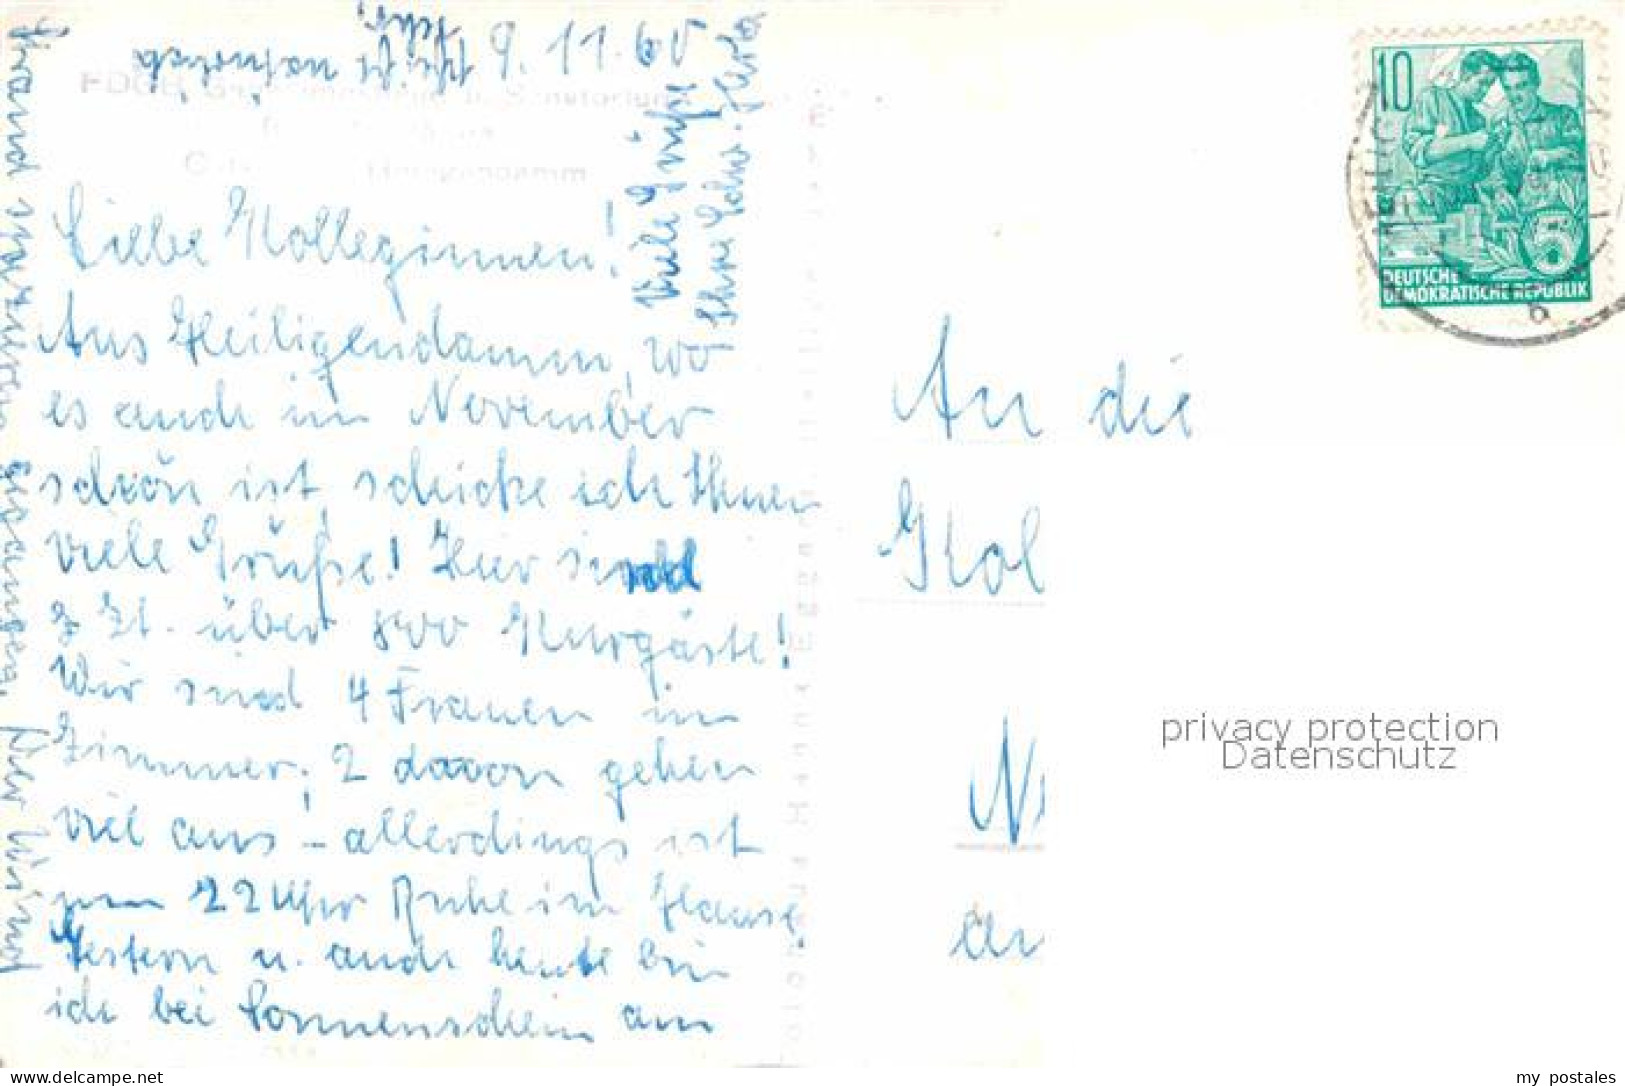 9. 11. 60
Liebe Kolleginnen!
Aus Heiligendamm, wo
es auch im November
schön ist, schicke ich Ihnen
viele Grüße! Hier sind
z Zt. über 800 Kurgäste!
Wir sind 4 Frauen im
Zimmer; 2 davon gehen
viel aus – allerdings ist
um 22 Uhr Ruhe im Hause.
Gestern u. auch heute bin
ich bei Sonnenschein am
Strand spazieren gegangen, der Wind
natürlich
Viele Grüße
Ihre Schw.
10
DEUTSCHE
DEMOKRATISCHE REPUBLIK
5
An die
privacy protection
Datenschutz
my postales